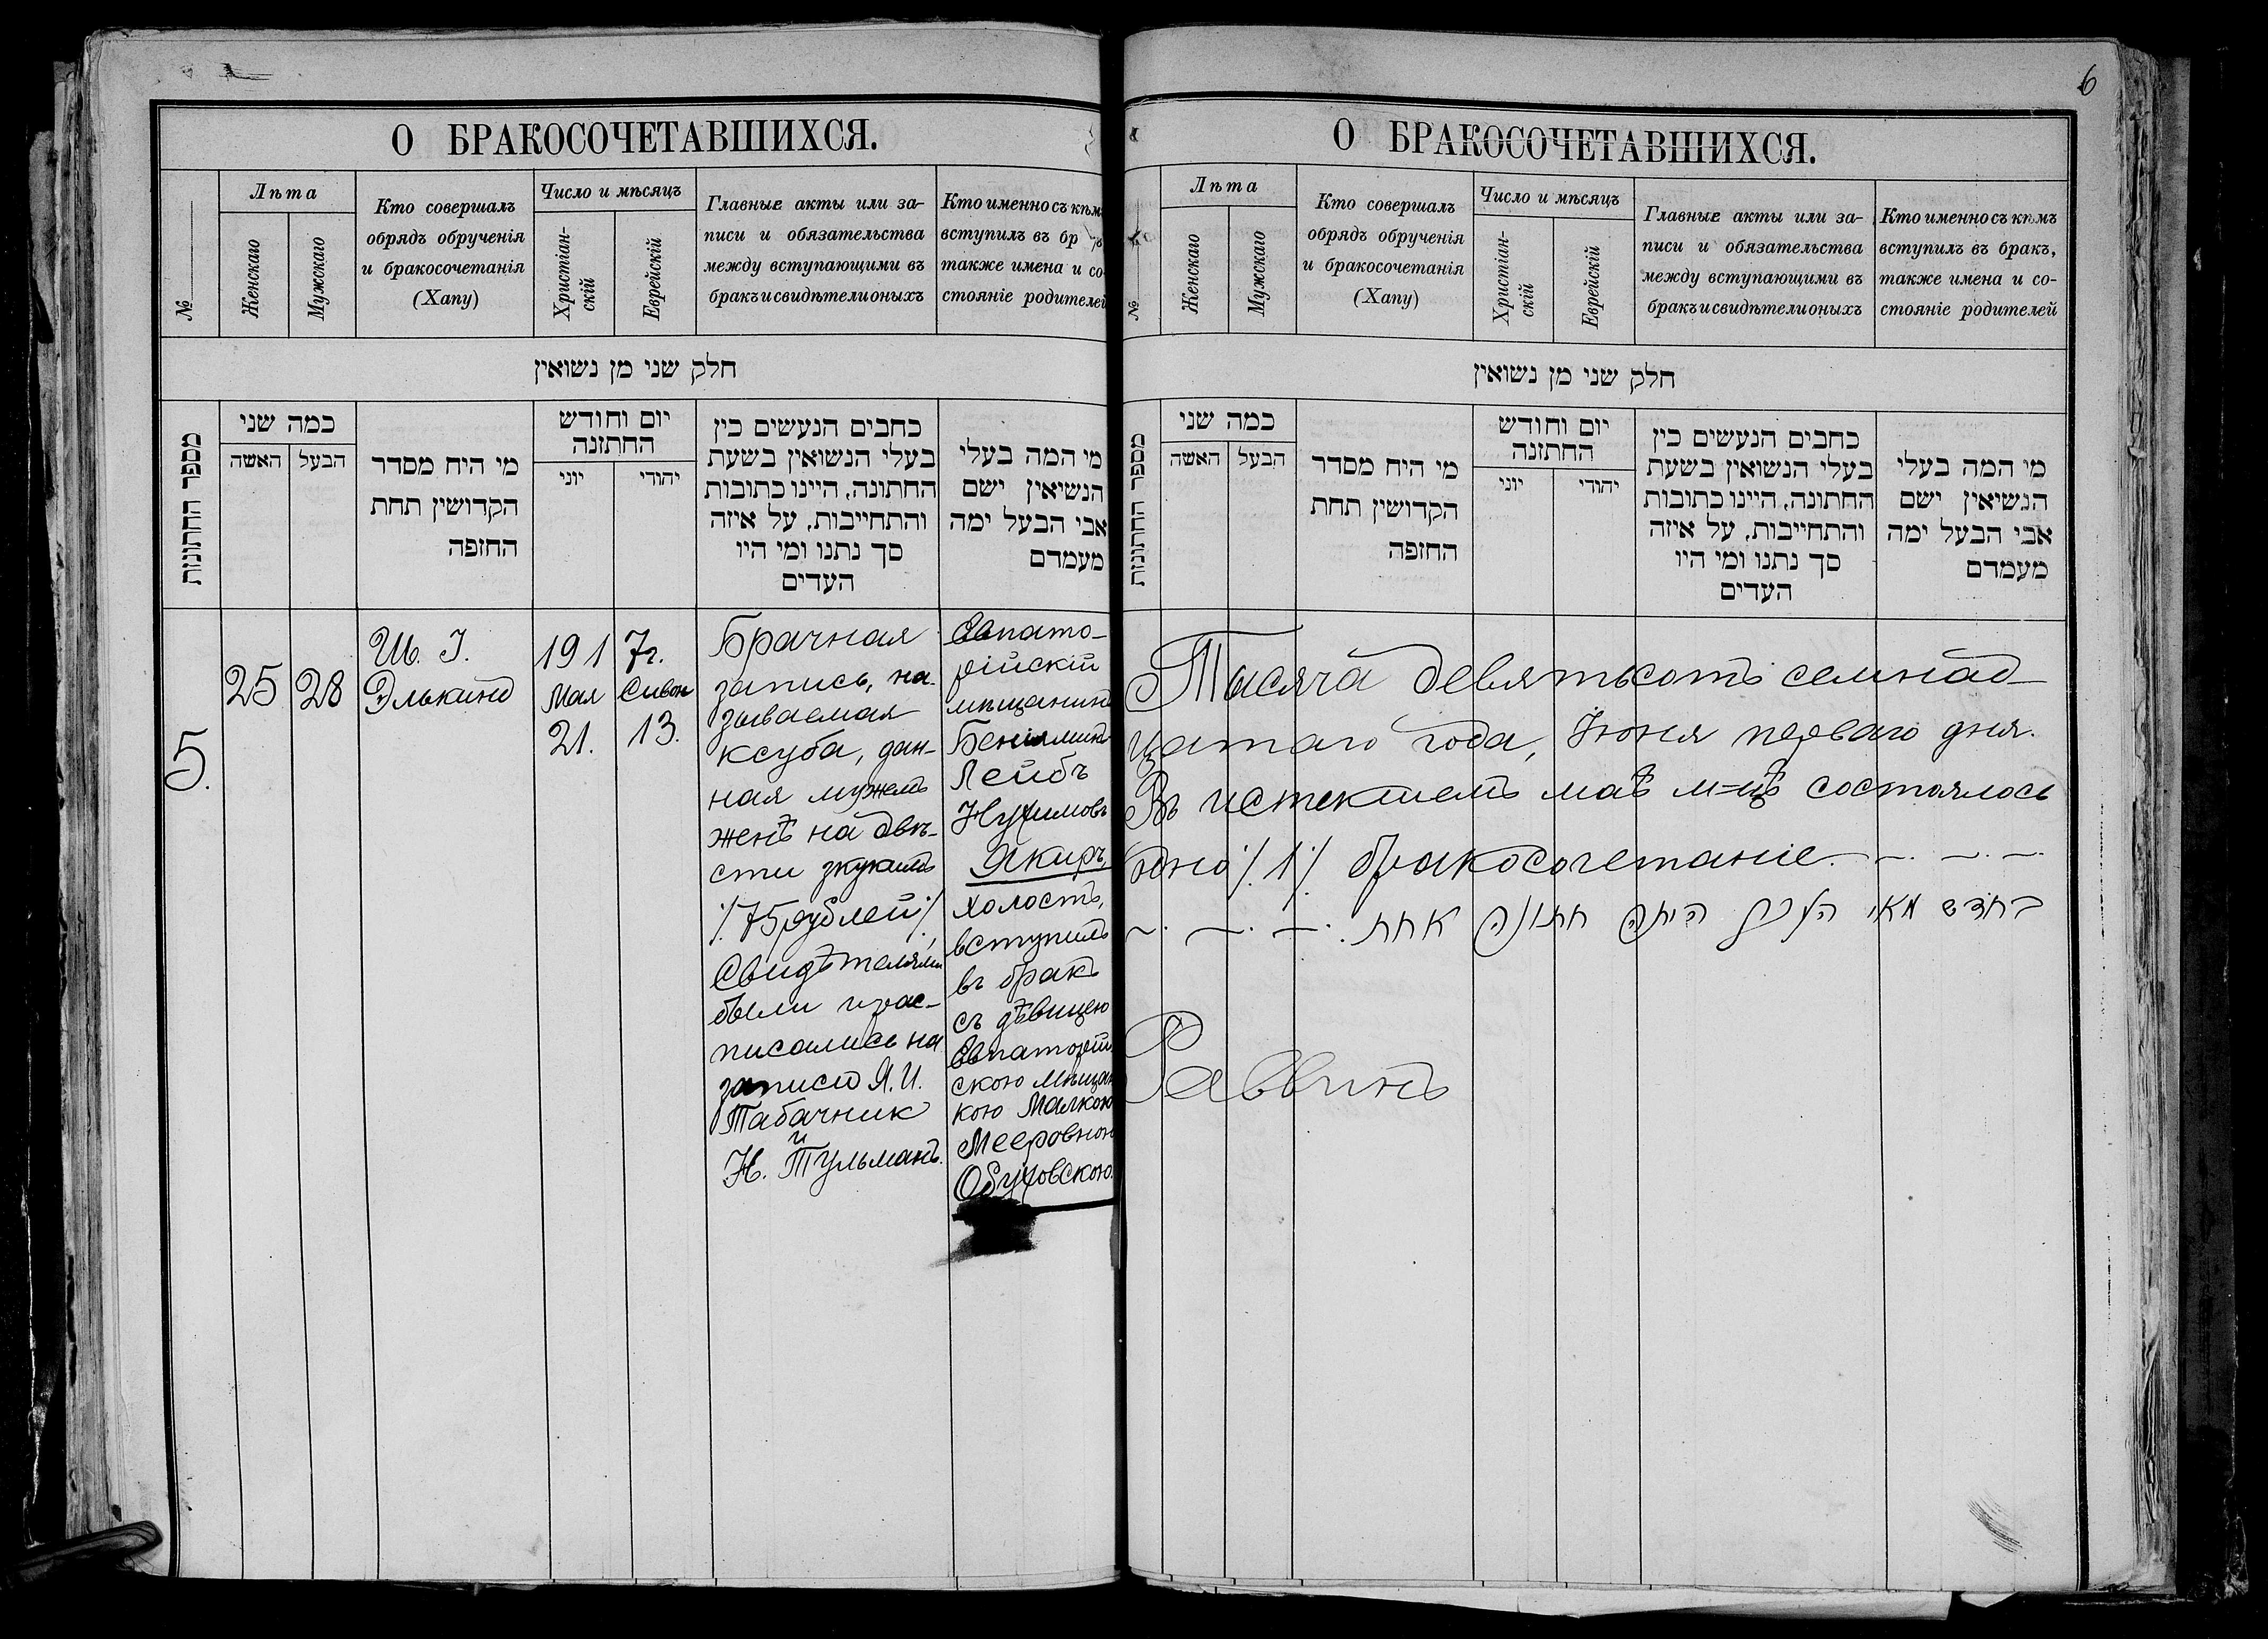 О БРАКОСОЧЕТАВШИХСЯ.
№
Лѣта
Женскаго
Мужскаго
Кто совершалъ
обрядъ обрученія
и бракосочетанія
(Хапу)
Число и мѣсяцъ
Христіан-
скій
Еврейскій
Главные акты или за-
писи и обязательства
между вступающими въ
бракъ и свидѣтели оныхъ
Кто именно съ кѣмъ
вступилъ въ бр
также имена и со-
стояніе родителей
חלק שני מן נשואין
מספר החתונות
כמה שני
האשה
הבעל
מי היח מסדר
הקדושין תחת
החופה
יום וחודש
החתונה
יוני
יהודי
כתבים הנעשים בין
בעלי הנשואין בשעת
החתונה, היינו כתובות
והתחייבות, על איזה
סך נתנו ומי היו
העדים
מי המה בעלי
הנשיאין ישם
אבי הבעל ימה
מעמדם
5.
25
28
Ш. I.
Элькинд
1917г.
Мая
21.
Сиван
13.
Брачная
запись, на-
зываемая
ксуба, дан-
ная мужемъ
женѣ на двѣ-
сти зкукимъ
/75 рублей/,
Свидѣтелями
были и рас-
писались на
записи Я. И.
Табачник
и
Н. Тульманъ.
Евпато-
рійскій
мѣщанинъ
Беніяминъ
Лейбъ
Нухимовъ
Якиръ,
холостъ,
вступилъ
въ бракъ
съ дѣвицею
Евпаторій
скою мѣщан
кою Малкою
Мееровною
Обуховскою.
6
О БРАКОСОЧЕТАВШИХСЯ.
№
Лѣта
Женскаго
Мужскаго
Кто совершалъ
обрядъ обрученія
и бракосочетанія
(Хапу)
Число и мѣсяцъ
Христіан-
скій
Еврейскій
Главные акты или за-
писи и обязательства
между вступающими въ
бракъ и свидѣтели оныхъ
Кто именно съ кѣмъ
вступилъ въ бракъ,
также имена и со-
стояніе родителей
חלק שני מן נשואין
מספר החתונות
כמה שני
האשה
הבעל
מי היח מסדר
הקדושין תחת
החופה
יום וחודש
החתונה
יוני
יהודי
כתבים הנעשים בין
בעלי הנשואין בשעת
החתונה, היינו כתובות
והתחייבות, על איזה
סך נתנו ומי היו
העדים
מי המה בעלי
הנשיאין ישם
אבי הבעל ימה
מעמדם
Тысяча девятьсотъ семнад-
цатаго года, Іюня перваго дня.
Въ истекшемъ маѣ м-цѣ состоялось
одно /1/ бракосочетаніе.
בחדש מאי העבר היתה חתונה אחת.
Раввинъ